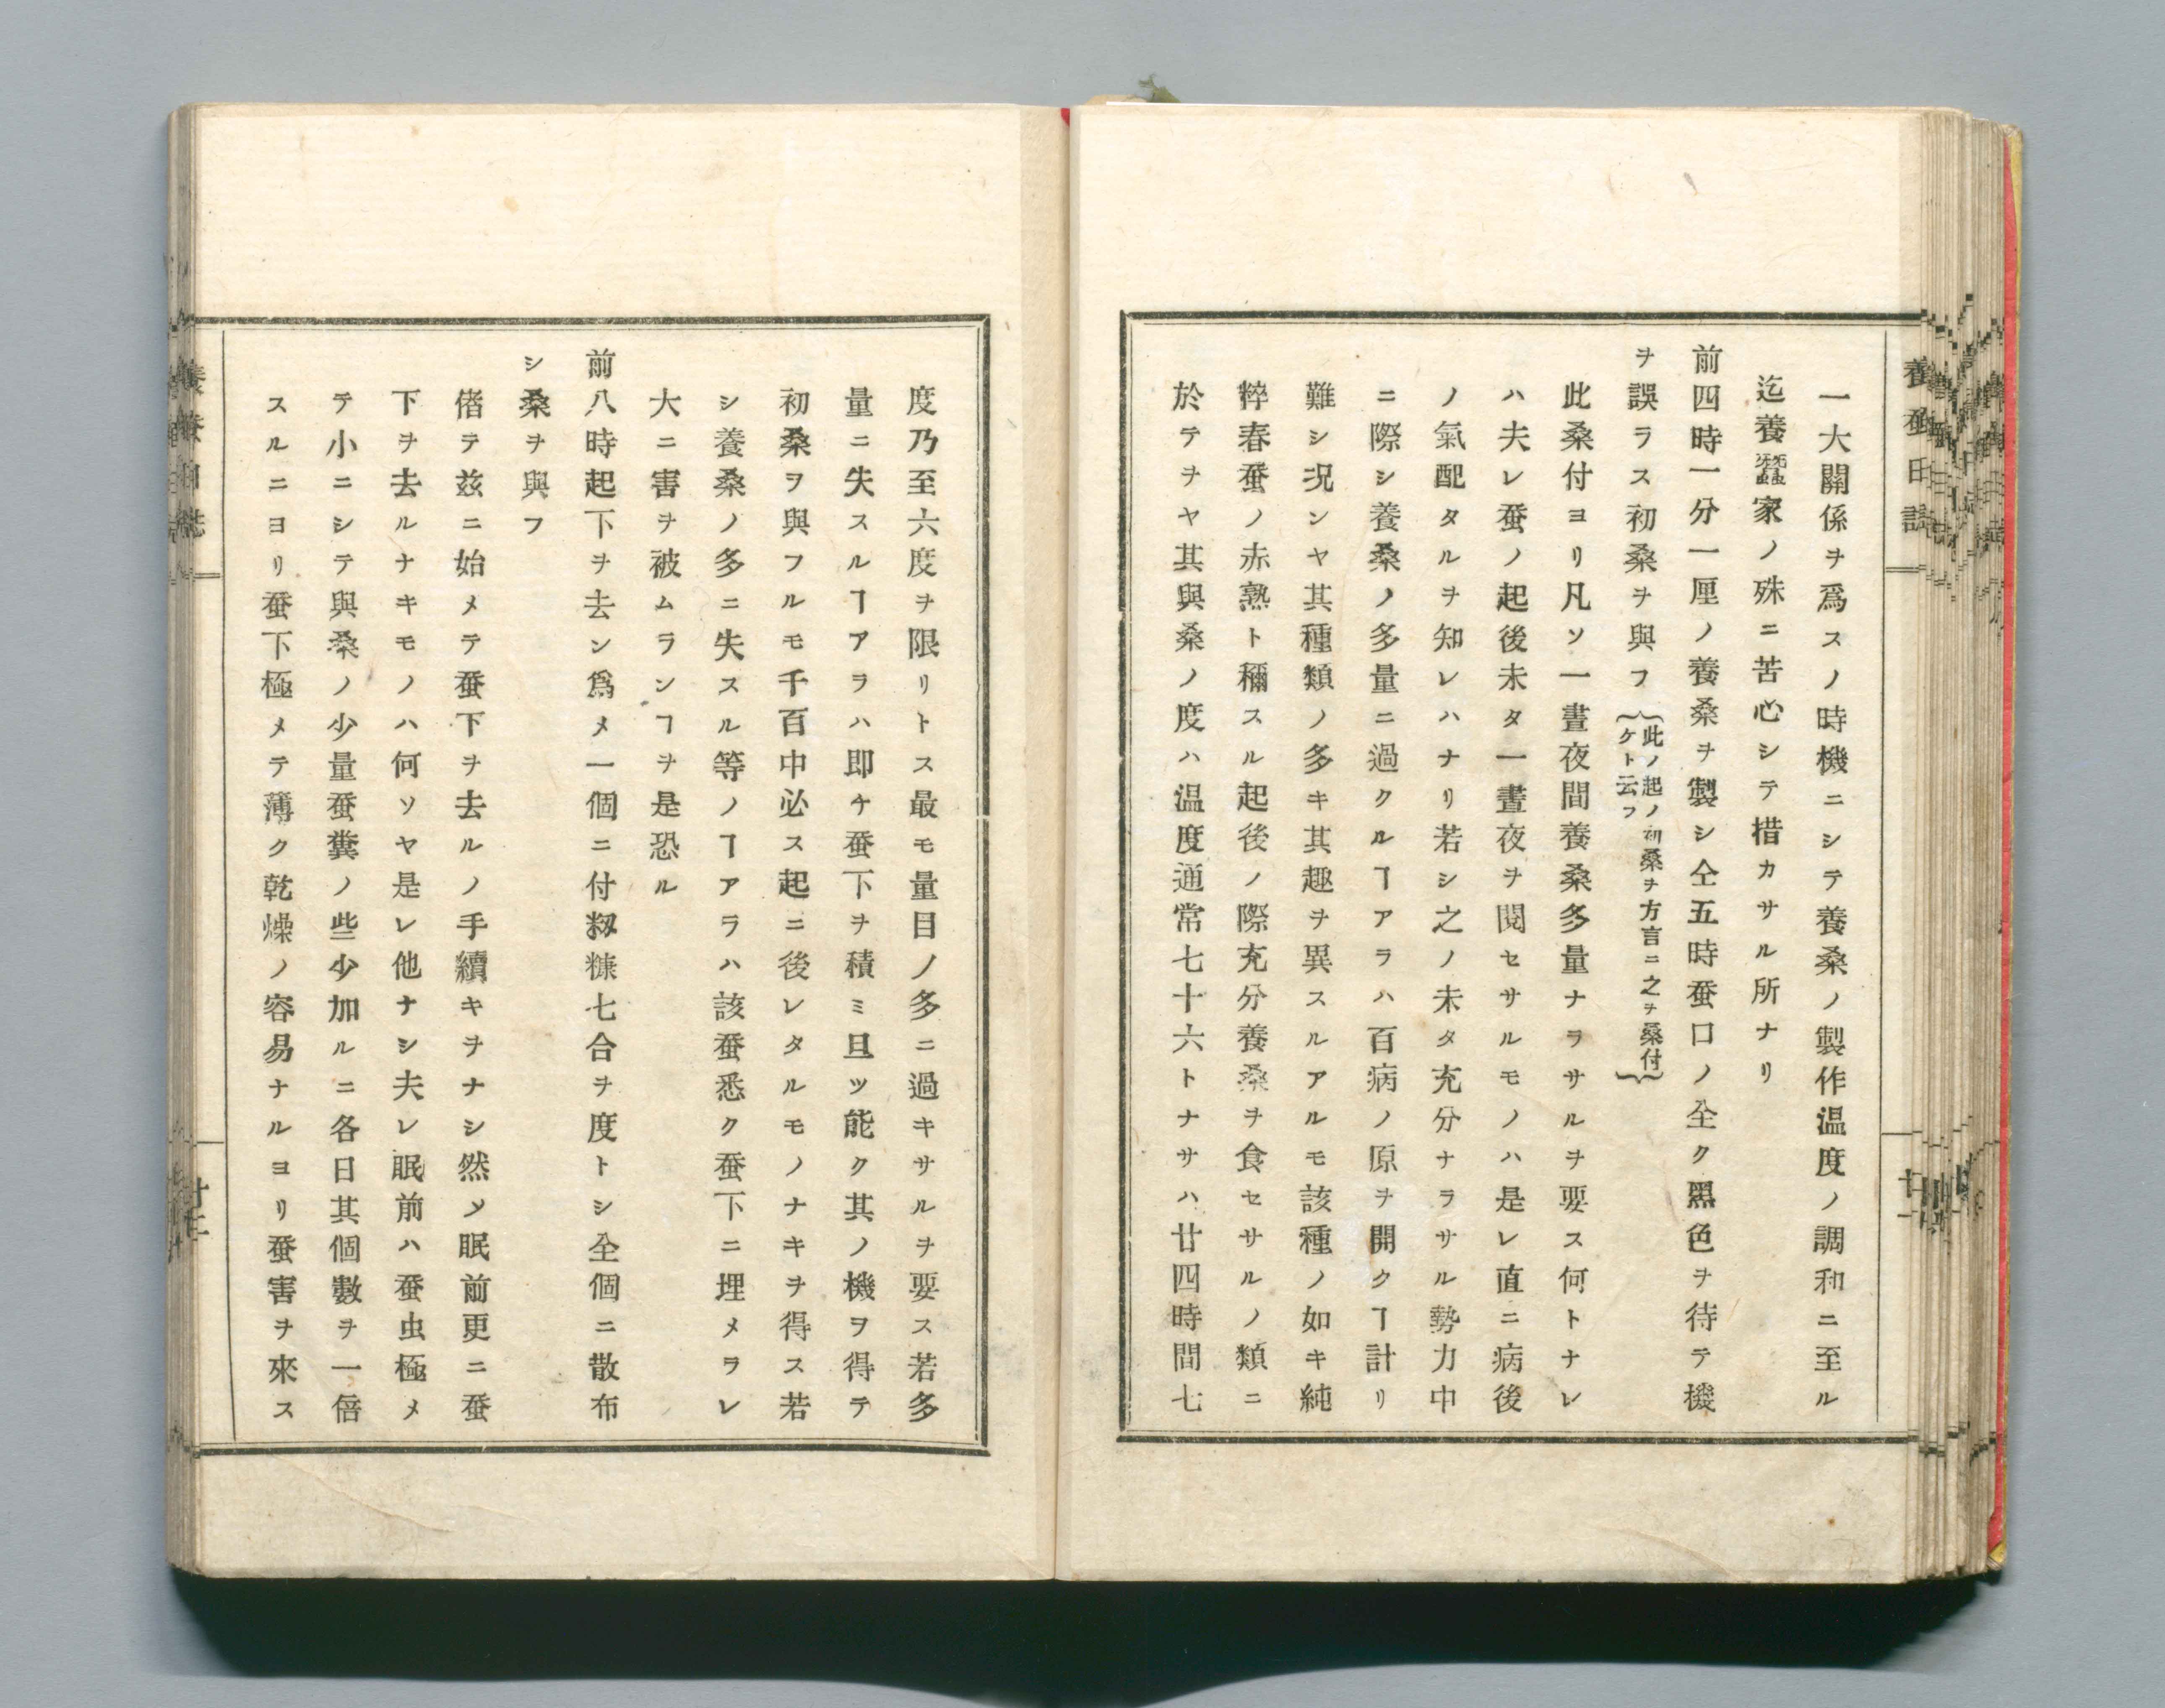 養蚕日誌
一大關係ヲ爲スノ時機ニシテ養桑ノ製作温度ノ調和ニ至ル
迄養蠶家ノ殊ニ苦心シテ措カサル所ナリ
前四時一分一厘ノ養桑ヲ製シ仝五時蚕口ノ全ク黑色ヲ待テ機
ヲ誤ラス初桑ヲ與フ
此ノ起ノ初桑ヲ方言ニ之ヲ桑付
ケト云フ
此桑付ヨリ凡ソ一晝夜間養桑多量ナラサルヲ要ス何トナレ
ハ夫レ蚕ノ起後未タ一晝夜ヲ閲セサルモノハ是レ直ニ病後
ノ氣配タルヲ知レハナリ若シ之ノ未タ充分ナラサル勢力中
ニ際シ養桑ノ多量ニ過クルヿアラハ百病ノ原ヲ開クヿ計リ
難シ况ンヤ其種類ノ多キ其趣ヲ異スルアルモ該種ノ如キ純
粹春蚕ノ赤熟ト稱スル起後ノ際充分養桑ヲ食セサルノ類ニ
於テヲヤ其與桑ノ度ハ温度通常七十六トナサハ廿四時間七
度乃至六度ヲ限リトス最モ量目ノ多ニ過キサルヲ要ス若多
量ニ失スルヿアラハ即ケ蚕下ヲ積ミ且ツ能ク其ノ機ヲ得テ
初桑ヲ與フルモ千百中必ス起ニ後レタルモノナキヲ得ス若
シ養桑ノ多ニ失スル等ノヿアラハ該蚕悉ク蚕下ニ埋メラレ
大ニ害ヲ被ムランヿヲ是恐ル
前八時起下ヲ去ン爲メ一個ニ付籾糠七合ヲ度トシ仝個ニ散布
シ桑ヲ與フ
偖テ玆ニ始メテ蚕下ヲ去ルノ手續キヲナシ然メ眠前更ニ蚕
下ヲ去ルナキモノハ何ソヤ是レ他ナシ夫レ眠前ハ蚕虫極メ
テ小ニシテ與桑ノ少量蚕糞ノ些少加ルニ各日其個數ヲ一倍
スルニヨリ蚕下極メテ薄ク乾燥ノ容易ナルヨリ蚕害ヲ來ス